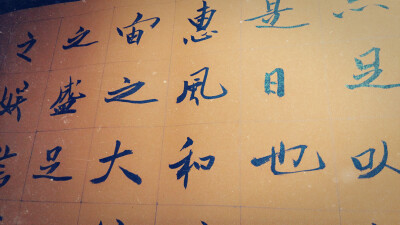 足以
是日也
惠風和
宙之大
之盛足
之娛